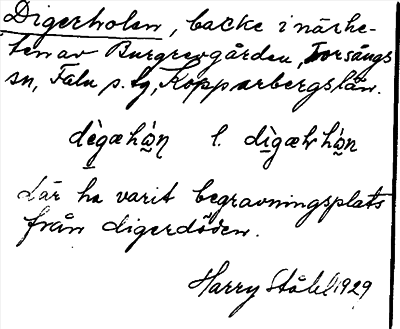 Digerholen, backe i närhe-
ten av Burgregården, Torsångs
sn, Falu s. lg, Kopparbergs län.
dìgæhǫ́ņ l. dìgæhǫ́ņ
där ha varit begravningsplats
från digerdöden.
Harry Ståhl 1929